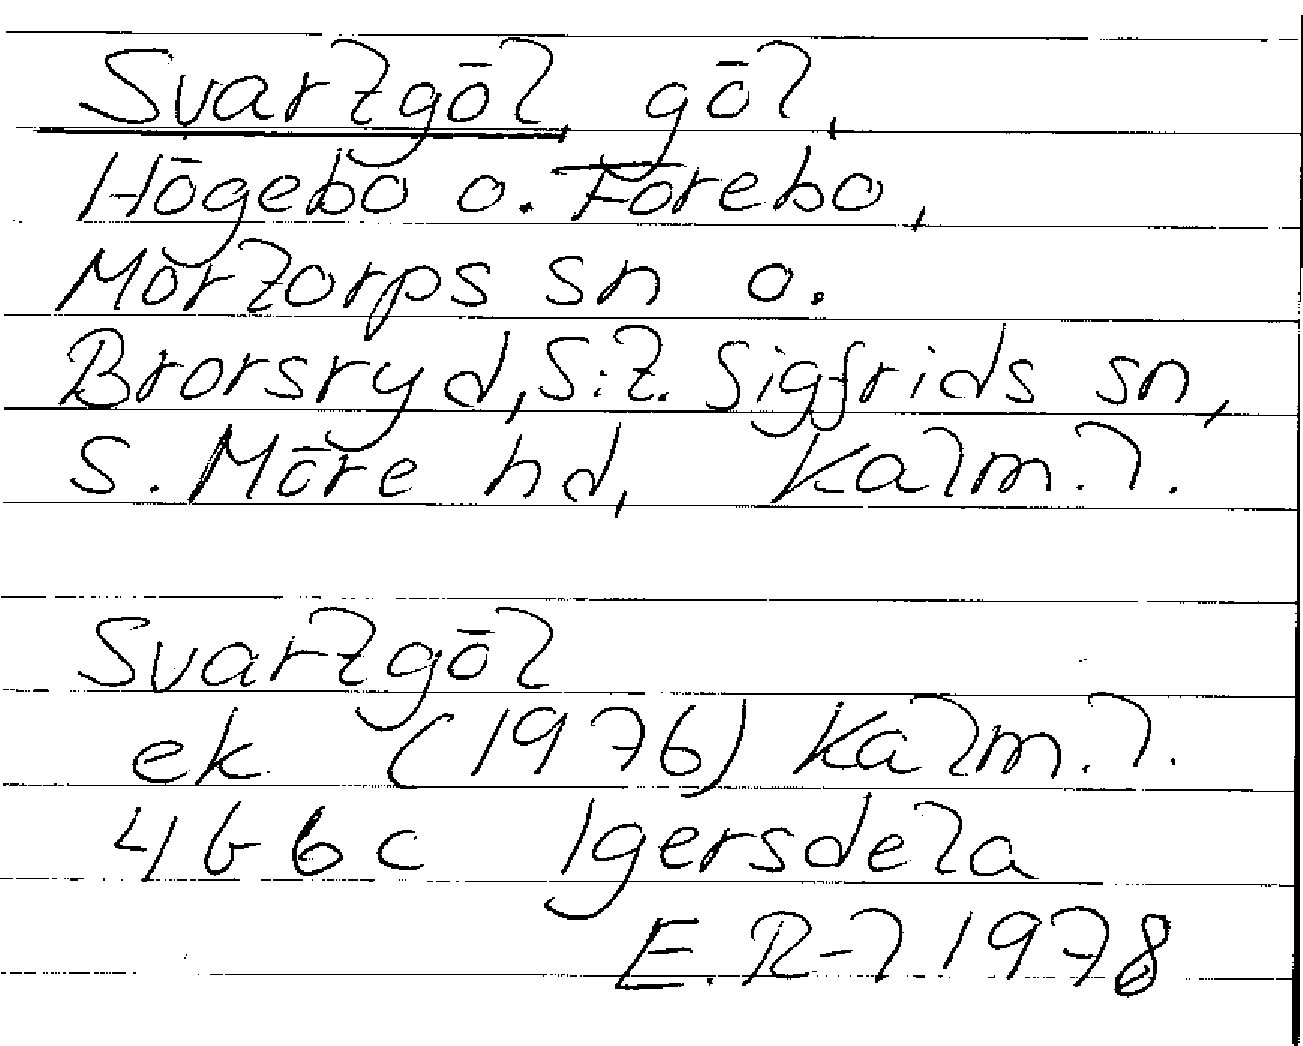 Svartgöl göl,
Högebo o. Förebo,
Mortorps sn o.
Brorsryd, S:t. Sigfrids sn,
S. Möre hd, Kalm. l.
Svartgöl
ek (1976) Kalm. l.
4G 6c Igersdela
E. R-l 1978